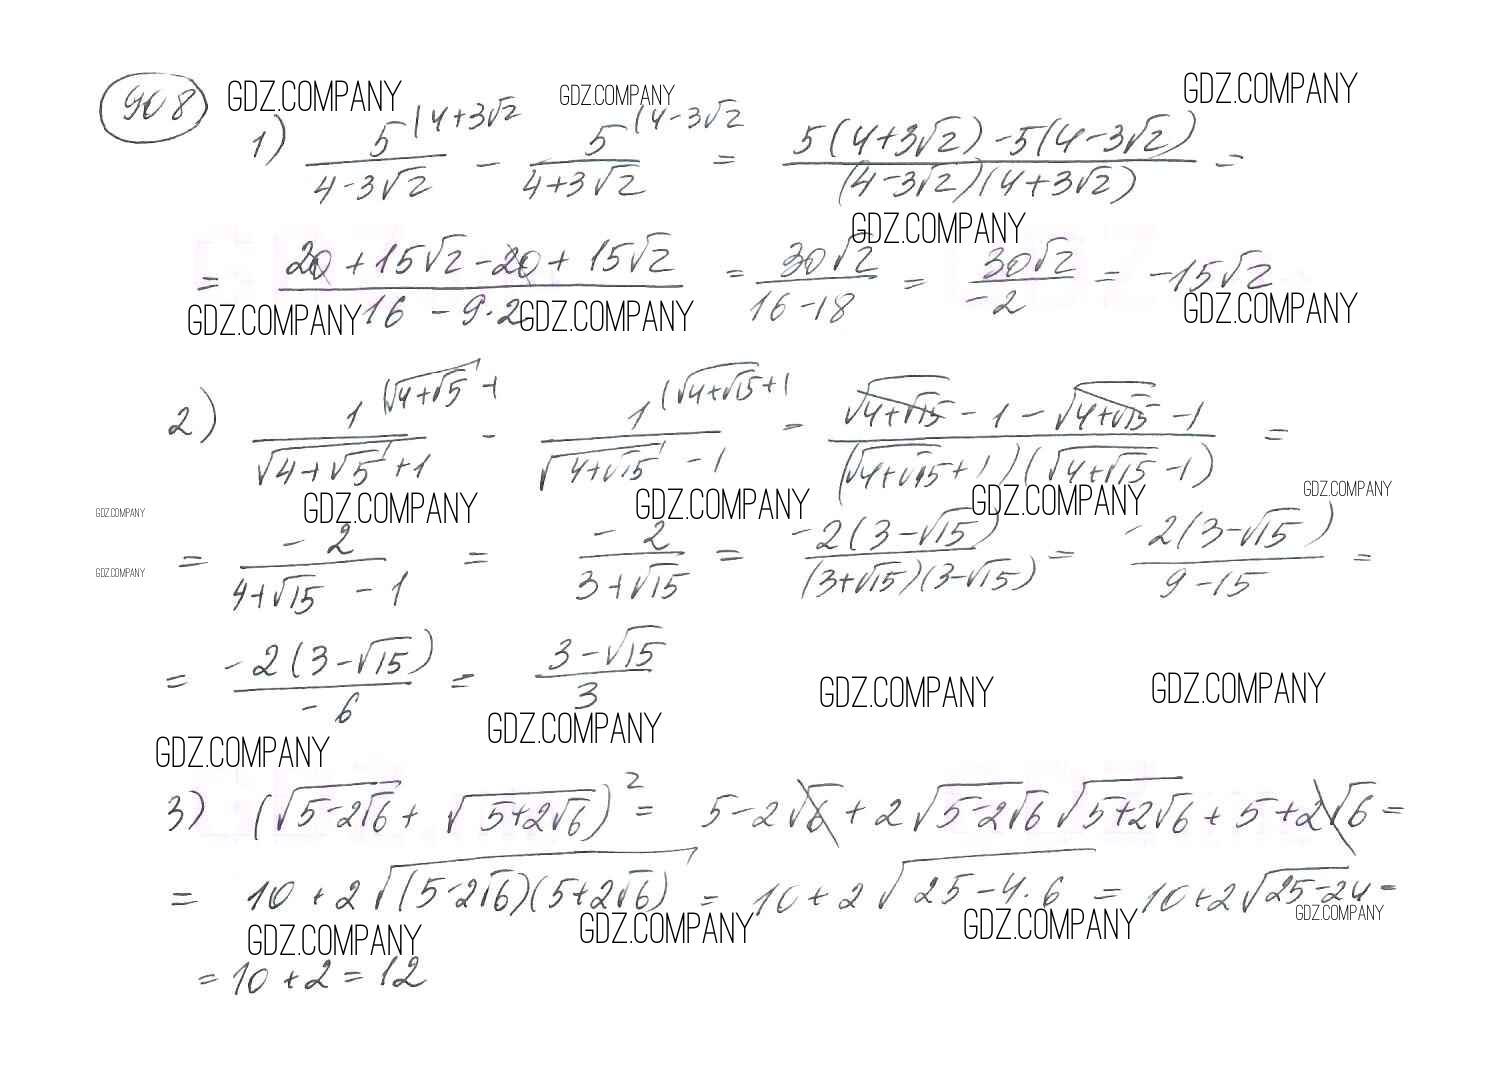 908 GDZ.COMPANY GDZ.COMPANY GDZ.COMPANY
1) 5/(4-3√2) (4+3√2 - 5/(4+3√2) (4-3√2 = (5(4+3√2)-5(4-3√2))/((4-3√2)(4+3√2)) =
GDZ.COMPANY
= (20+15√2-20+15√2)/(16-9·2) = 30√2/(16-18) = 30√2/(-2) = -15√2
GDZ.COMPANY GDZ.COMPANY GDZ.COMPANY
2) 1/(√(4+√5)+1) (√(4+√5)-1 - 1/(√(4+√15)-1) (√(4+√15)+1 = (√(4+√15)-1-√(4+√15)-1)/((√(4+√15)+1)(√(4+√15)-1)) =
GDZ.COMPANY GDZ.COMPANY GDZ.COMPANY GDZ.COMPANY GDZ.COMPANY
= -2/(4+√15-1) = -2/(3+√15) = -2(3-√15)/((3+√15)(3-√15)) = -2(3-√15)/(9-15) =
GDZ.COMPANY
= -2(3-√15)/(-6) = (3-√15)/3
GDZ.COMPANY GDZ.COMPANY
GDZ.COMPANY GDZ.COMPANY
3) (√(5-2√6)+√(5+2√6))² = 5-2√6+2√(5-2√6)√(5+2√6)+5+2√6 =
= 10+2√((5-2√6)(5+2√6)) = 10+2√(25-4·6) = 10+2√(25-24) =
GDZ.COMPANY GDZ.COMPANY GDZ.COMPANY GDZ.COMPANY
= 10+2=12